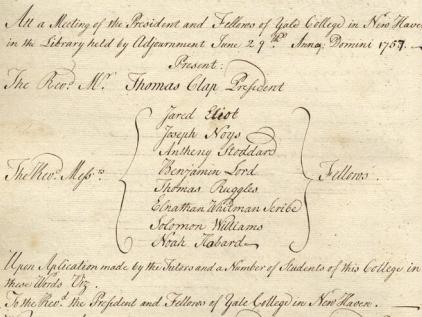 At a Meeting of the President and Fellows of Yale College in New Haven
in the Library held by Adjournment June 29th. Anno Domini 1757.
Present.
The Revd. Mr. Thomas Clap President
Jared Eliot
Joseph Noys
Anthony Stoddard
Benjamin Lord
The Revd. Messrs. Thomas Ruggles Fellows.
Elnathan Whitman Scribe
Solomon Williams
Noah Hobard
Upon Aplication made by the Tutors and a Number of Students of this College in
these Words Viz.
To the Revd. the President and Fellows of Yale College in New Haven.